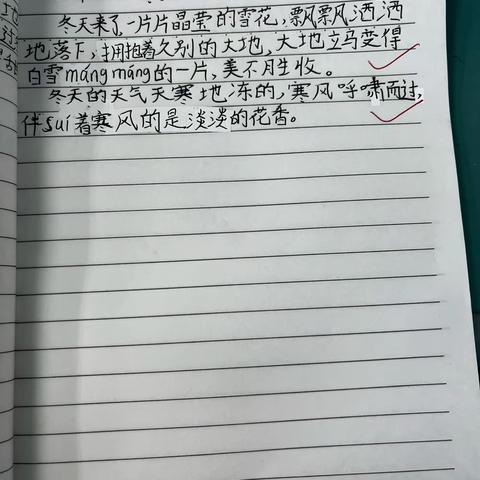 冬天来了,一片片晶莹的雪花,飘飘风洒洒
地落下,拥抱着久别的大地,大地立马变得
白雪máng máng的一片,美不月生收。
冬天的天气天寒地冻的,寒风呼啸而过,
伴suí着寒风的是淡淡的花香。